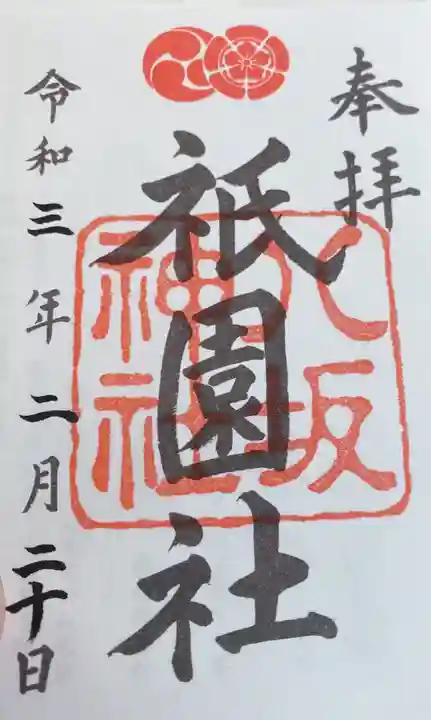 奉拝
祇園社
八坂
神社
令和三年二月二十日